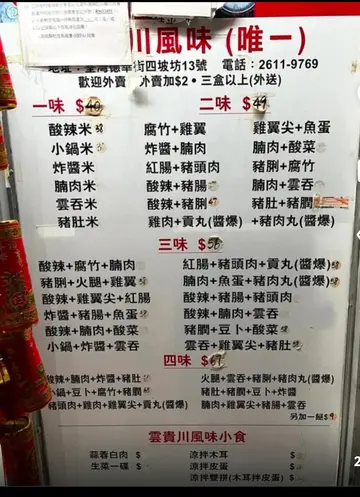 川風味 (唯一)
街四坡坊13號 電話：2611-9769
歡迎外賣 外賣加$2・三盒以上(外送)
一味 $40
二味 $49
酸辣米 腐竹+雞翼 雞翼尖+魚蛋
小鍋米 炸醬+腩肉 腩肉+酸菜
炸醬米 紅腸+豬頭肉 豬脷+腐竹
腩肉米 酸辣+豬腸 腩肉+雲吞
雲吞米 酸辣+豬脷 豬肚+豬膶
豬肚米 雞肉+貢丸(醬爆) +豬肉丸(醬爆)
三味 $
酸辣+腐竹+腩肉 紅腸+豬頭肉+貢丸(醬爆)
豬脷+火腿+雞翼 腩肉+魚蛋+豬肉丸(醬爆)
酸辣+雞翼尖+紅腸 酸辣+豬腸+豬頭肉
炸醬+豬腸+魚蛋 酸辣+腩肉+雲吞
酸辣+腩肉+酸菜 豬膶+豆卜+酸菜
小鍋+炸醬+雲吞 雲吞+雞翼尖+豬肚
四味 $
酸辣+腩肉+炸醬+豬肚 火腿+雲吞+豬脷+豬肉丸(醬爆)
小鍋+豆卜+腐竹+豬膶 豬肚+豬腸+炸醬+魚蛋
豬頭肉+腩肉+雞翼尖+貢丸(醬爆) 腩肉+雞翼尖+雲吞+豬肚
另加一餸$
雲貴川風味小食
蒜蓉白肉 $ 涼拌木耳 $
生菜一碟 $ 涼拌皮蛋 $
涼拌雙拼(木耳拌皮蛋) $